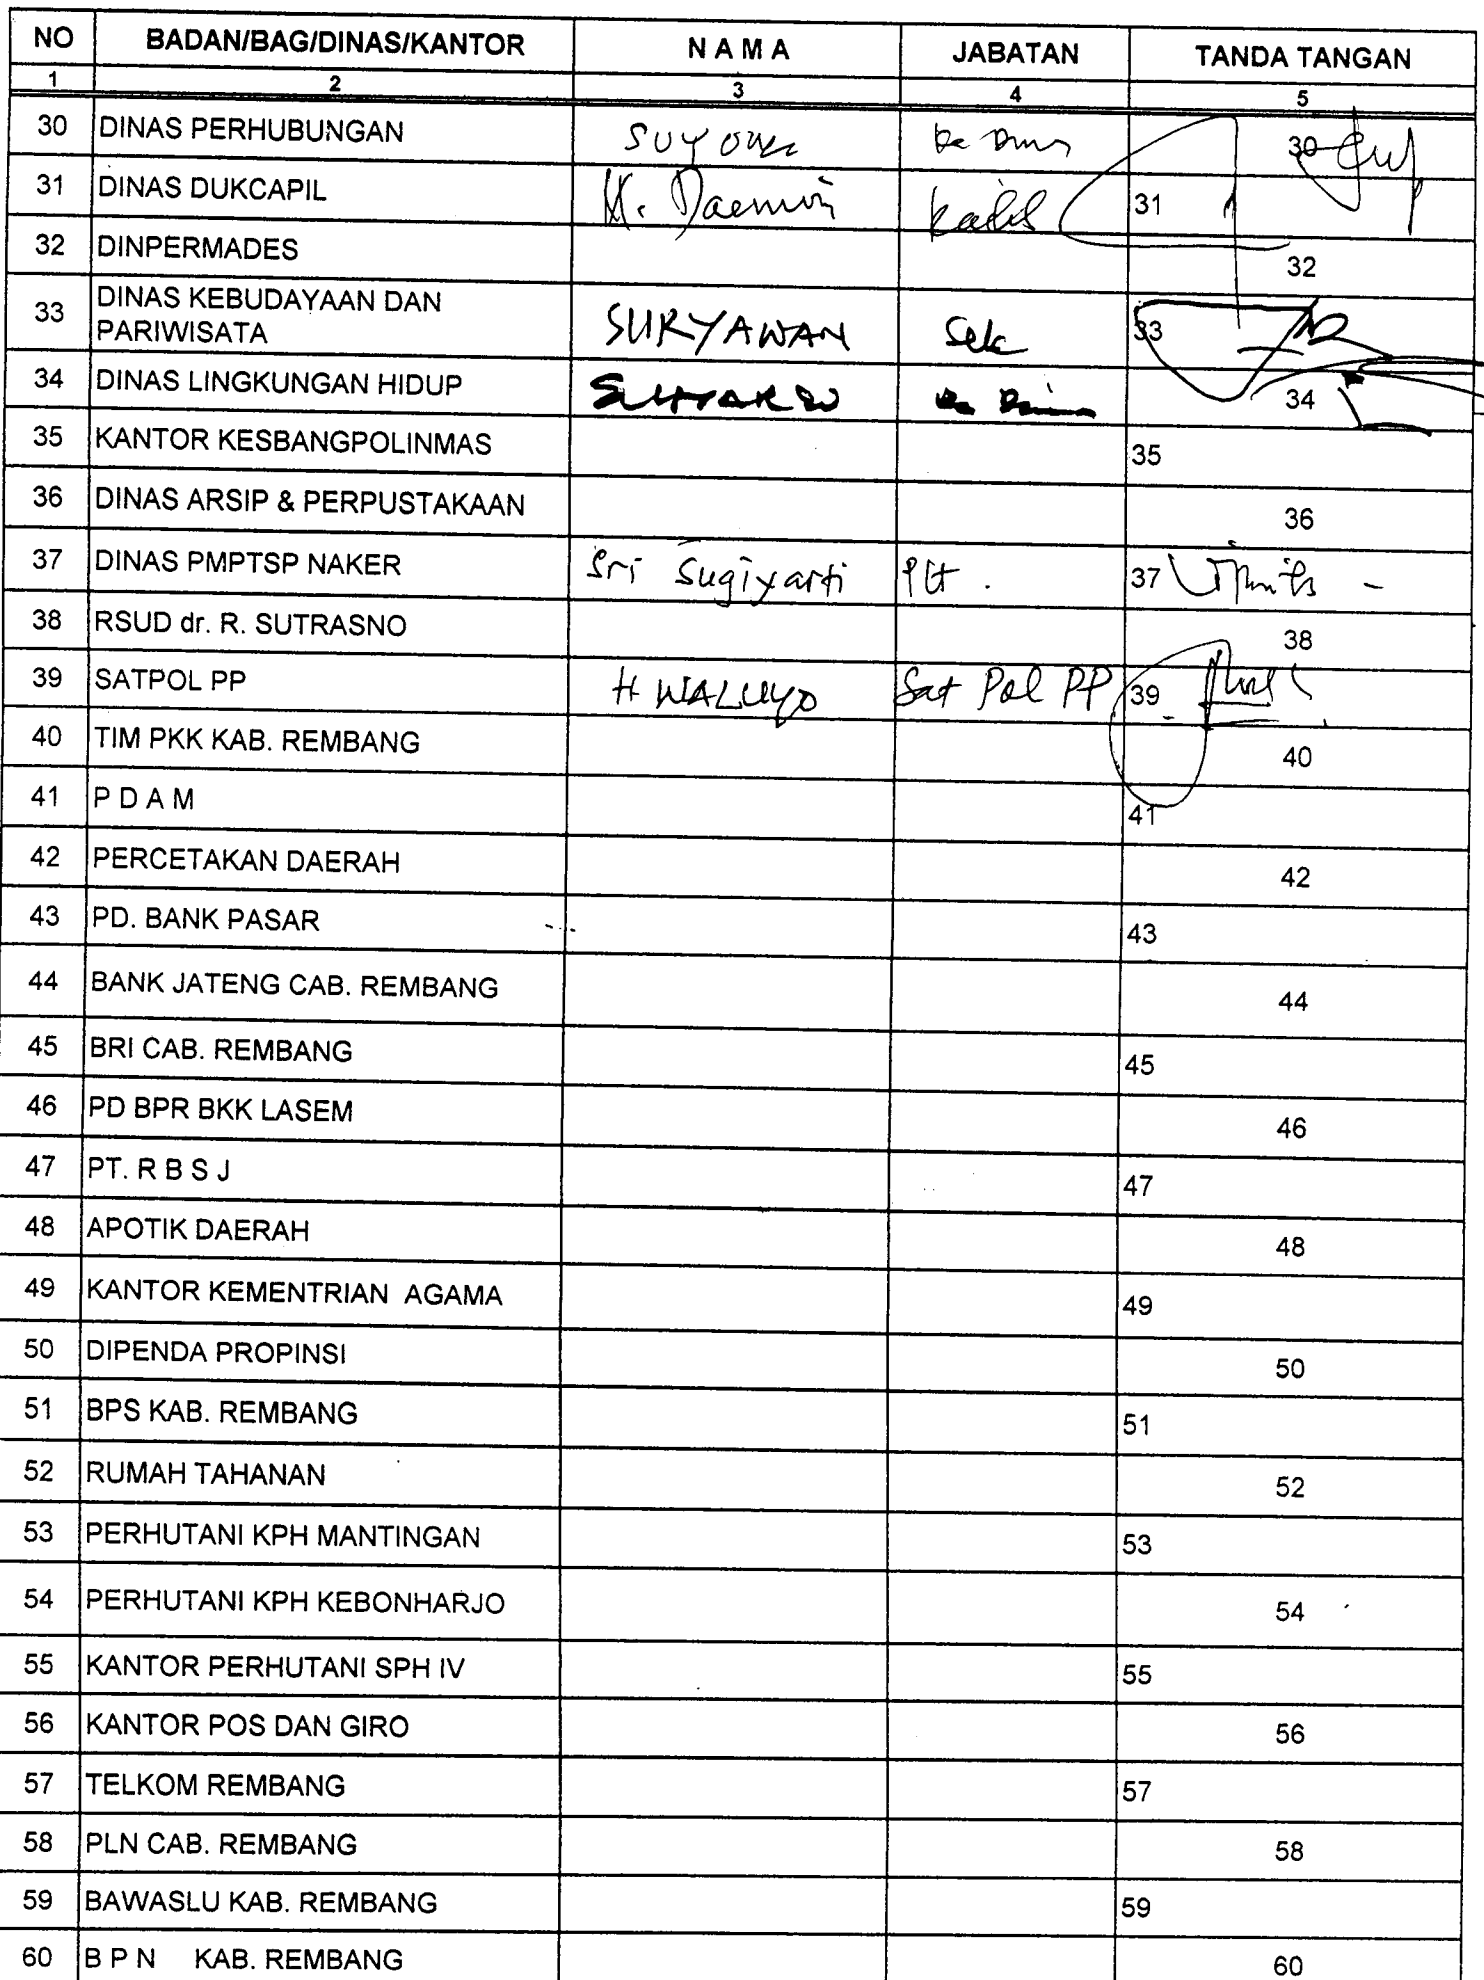 NO BADAN/BAG/DINAS/KANTOR N A M A JABATAN TANDA TANGAN
1 2 3 4 5
30 DINAS PERHUBUNGAN SUYONO Ka Dinas 30
31 DINAS DUKCAPIL H. Daenuri 31
32 DINPERMADES 32
33 DINAS KEBUDAYAAN DAN
PARIWISATA SURYAWAN Sek 33
34 DINAS LINGKUNGAN HIDUP SUHARSO Ka Dinas 34
35 KANTOR KESBANGPOLINMAS 35
36 DINAS ARSIP & PERPUSTAKAAN 36
37 DINAS PMPTSP NAKER Sri Sugiyarti Plt. 37
38 RSUD dr. R. SUTRASNO 38
39 SATPOL PP H WALUYO Sat Pol PP 39
40 TIM PKK KAB. REMBANG 40
41 P D A M 41
42 PERCETAKAN DAERAH 42
43 PD. BANK PASAR 43
44 BANK JATENG CAB. REMBANG 44
45 BRI CAB. REMBANG 45
46 PD BPR BKK LASEM 46
47 PT. R B S J 47
48 APOTIK DAERAH 48
49 KANTOR KEMENTRIAN AGAMA 49
50 DIPENDA PROPINSI 50
51 BPS KAB. REMBANG 51
52 RUMAH TAHANAN 52
53 PERHUTANI KPH MANTINGAN 53
54 PERHUTANI KPH KEBONHARJO 54
55 KANTOR PERHUTANI SPH IV 55
56 KANTOR POS DAN GIRO 56
57 TELKOM REMBANG 57
58 PLN CAB. REMBANG 58
59 BAWASLU KAB. REMBANG 59
60 B P N KAB. REMBANG 60